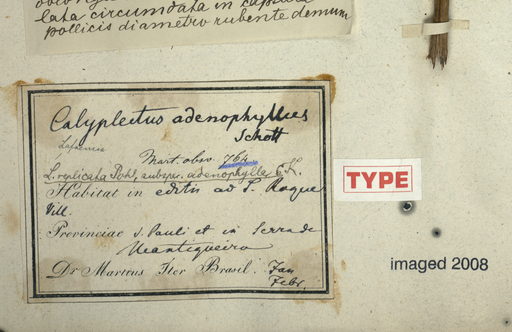 lata circumdata in capsula
pollicis diametro rubente demum
Calyplectus adenophyllus
Schott
Lafoensia
Mart. obsv. 764
L. replicata Pohl, subspr. adenophylla K.
Habitat in editis ad S. Roque
Vill.
Provinciae S. Pauli et in Serra de
Mantiqueira
Dr Martius Iter Brasil. Jan
Febr.
TYPE
imaged 2008